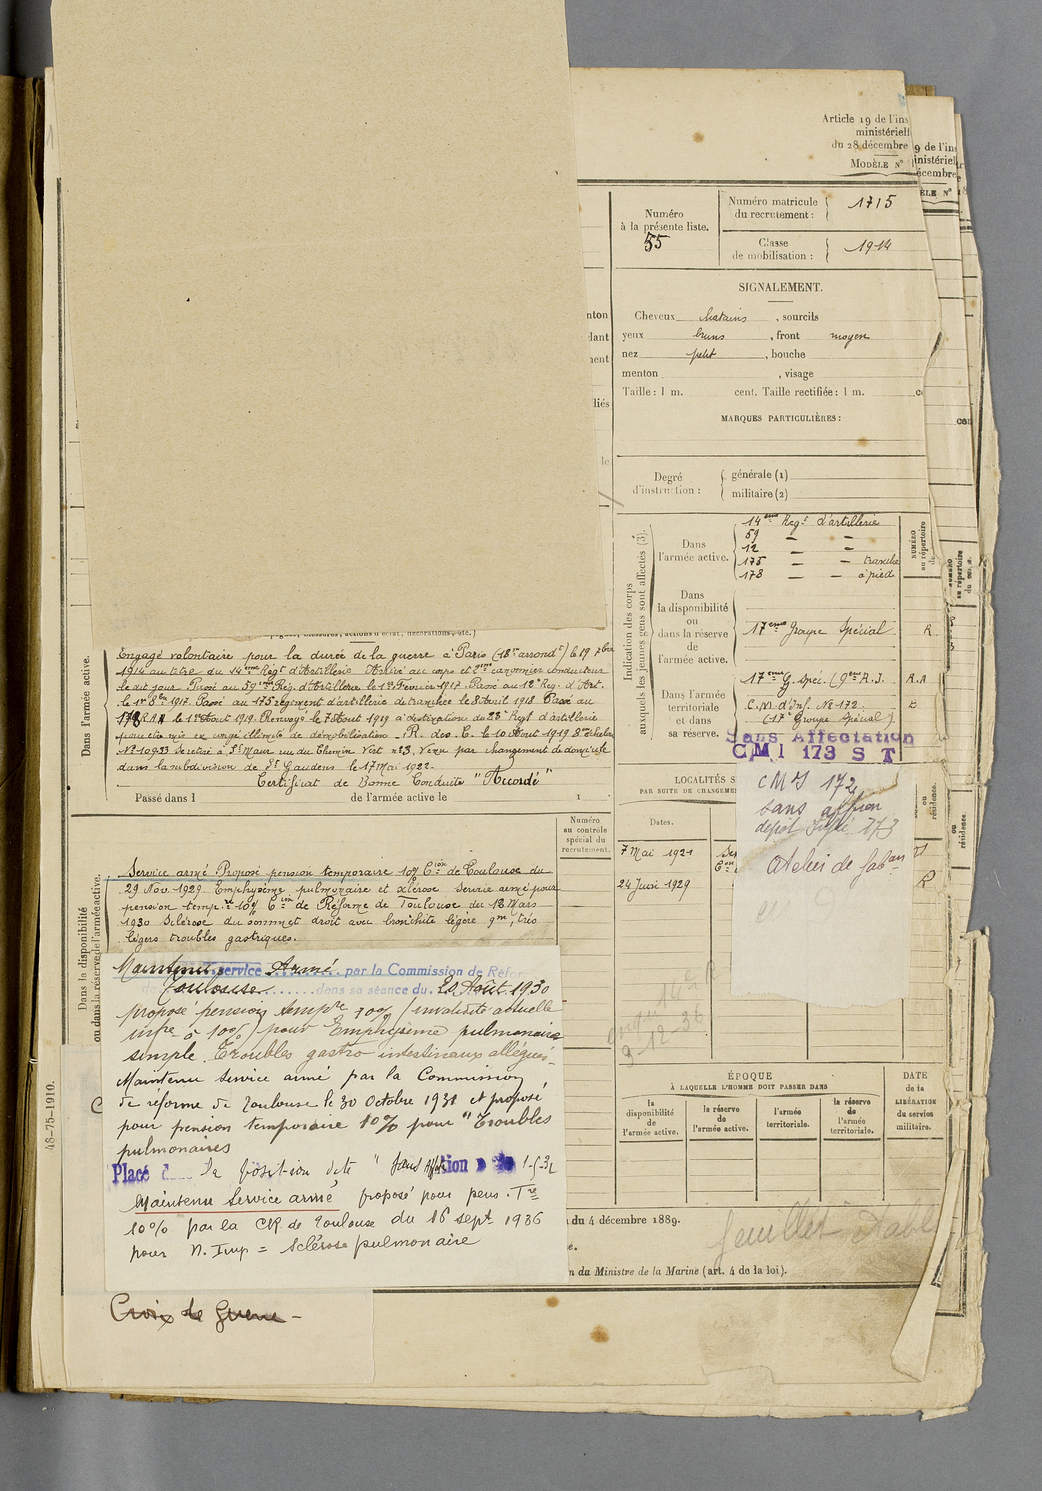 Article 19 de l'ins
ministériell
du 28 décembre
MODÈLE N°
9 de l'in
inistériel
écembre
ÈLE N°
Numéro
à la présente liste.
55
Numéro matricule
du recrutement :
1715
Classe
de mobilisation :
1914
SIGNALEMENT.
Cheveux châtains, sourcils
yeux bruns, front moyen
nez petit, bouche
menton, visage
Taille : 1 m. cent. Taille rectifiée : 1 m. c
MARQUES PARTICULIÈRES :
Degré
d'instruction :
générale (1)
militaire (2)
Indication des corps
auxquels les jeunes gens sont affectés (3).
Dans
l'armée active.
14ème Régt d'artillerie
59 — —
12 — —
175 — — tranchée
178 — — à pied
NUMÉRO
au répertoire
du
Dans
la disponibilité
ou
dans la réserve
de
l'armée active.
17ème Groupe Spécial R
Dans l'armée
territoriale
et dans
sa réserve.
17ème G. Spéc. (9ème R.I. R.A
C.M. d'Inf. No 172
(17e Groupe Spécial)
Sans Affectation
CMI 173 S T
LOCALITÉS S
PAR SUITE DE CHANGEME
Dates.
7 Mai 1921
24 Juin 1929
R
CMI 172
sans aff ion
dépôt 173
atelier de
Dans l'armée active.
Engagé volontaire pour la durée de la guerre à Paris (18e arrondt) le 19 7bre
1914 au titre du 14ème Régt d'Artillerie Arrivé au corps et 2ème canonnier conducteur
le dit jour Passé au 59ème Rég. d'Artillerie le 1er Fevrier 1917. Passé au 12e Reg. d'Art.
le 1er 8bre 1917. Passé au 175 régiment d'artillerie de tranchée le 8 Avril 1918 Passé au
178 R.A.A le 1er Aout 1919. Renvoyé le 7 Aout 1919 à destination du 23e Regt d'artillerie
pour être mis en congé illimité de démobilisation. R. des C. le 10 Aout 1919 8e échelon
No 10933 Se retire à St Maur rue du Chemin Vert no 3. Venu par changement de domicile
dans la subdivision de St Gaudens le 17 Mai 1922.
Certificat de Bonne Conduite "Accordé"
Passé dans l de l'armée active le 1
Numéro
au contrôle
spécial du
recrutement.
Dans la disponibilité
ou dans la réserve de l'armée active.
Service armé Proposé pension temporaire 10% Cion de Toulouse du
29 Nov. 1929 Emphysème pulmonaire et sclérose Service armé pour
pension tempre 10% Cion de Réforme de Toulouse du 18 Mars
1930 Sclérose du sommet droit avec bronchite légère gne, très
légers troubles gastriques.
Maintenu service Armé par la Commission de Réfor
de Toulouse dans sa séance du 20 Août 1930
proposé pension tempre 10% (invalidité actuelle
infre à 10%) pour Emphysème pulmonaire
simple. Troubles gastro intestinaux allégués.
Maintenu service armé par la Commission
de réforme de Toulouse le 30 Octobre 1931 et proposé
pour pension temporaire 10% pour "Troubles
pulmonaires
Placé la position dite "Sans Affection
Maintenu Service armé, proposé pour pens. Tre
10% par la CR de Toulouse du 16 sept 1936
pour N. Imp = Sclérose pulmonaire
Croix de Guerre -
48-75-1910.
9-12-36
ÉPOQUE
À LAQUELLE L'HOMME DOIT PASSER DANS
la
disponibilité
de
l'armée active.
la réserve
de
l'armée active.
l'armée
territoriale.
la réserve
de
l'armée
territoriale.
DATE
de la
LIBÉRATION
du service
militaire.
du 4 décembre 1889.
n du Ministre de la Marine (art. 4 de la loi).
feuillet